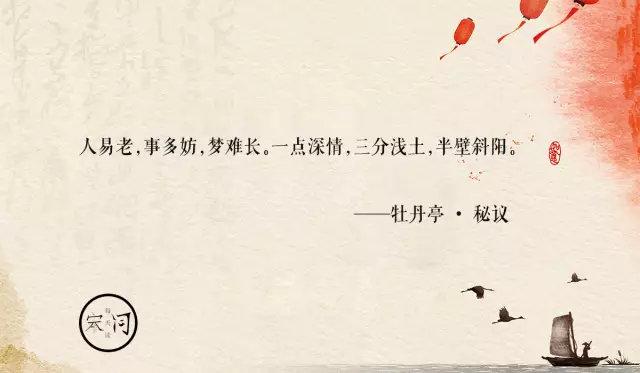 人易老，事多妨，梦难长。一点深情，三分浅土，半壁斜阳。
——牡丹亭 · 秘议